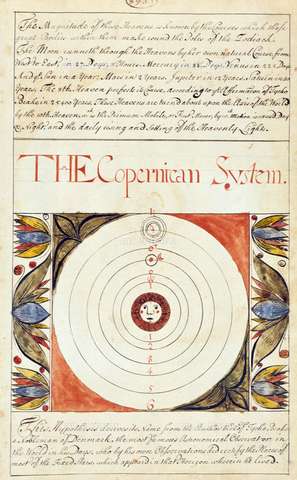 The Magnitude of these Heavens is known by the Courses which those
great Bodies within them make round the Poles of the Zodiack.
The Moon runneth through the Heavens by her own natural Course from
West to East in 27 Days, 8 Hours, Mercury in 88 Days, Venus in 225 Days
And ye Sun in a Year: Mars in 2 Years. Jupiter in 12 Years. Saturn in 30
Years. The 8th Heaven perfects its Course, According to ye Affirmation of Tycho
Brahe in 25400 Years. These Heavens are turn'd about upon the Poles of the World
by the 10th Heaven, the Primum Mobile, or First Mover, by wch motion is caused Day
& Night, and the daily rising and Setting of the Heavenly Lights.
THE Copernican System.
1
2
3
4
5
6
This Hypothesis derives its Name from the Tycho Brahe
a Nobleman of Denmark, the most famous Astronomical Observator in
the World in his Days, who by his own Observations did rectify the Places of
most of the Fixed Stars, which appeared in that Horizon wherein he Lived.